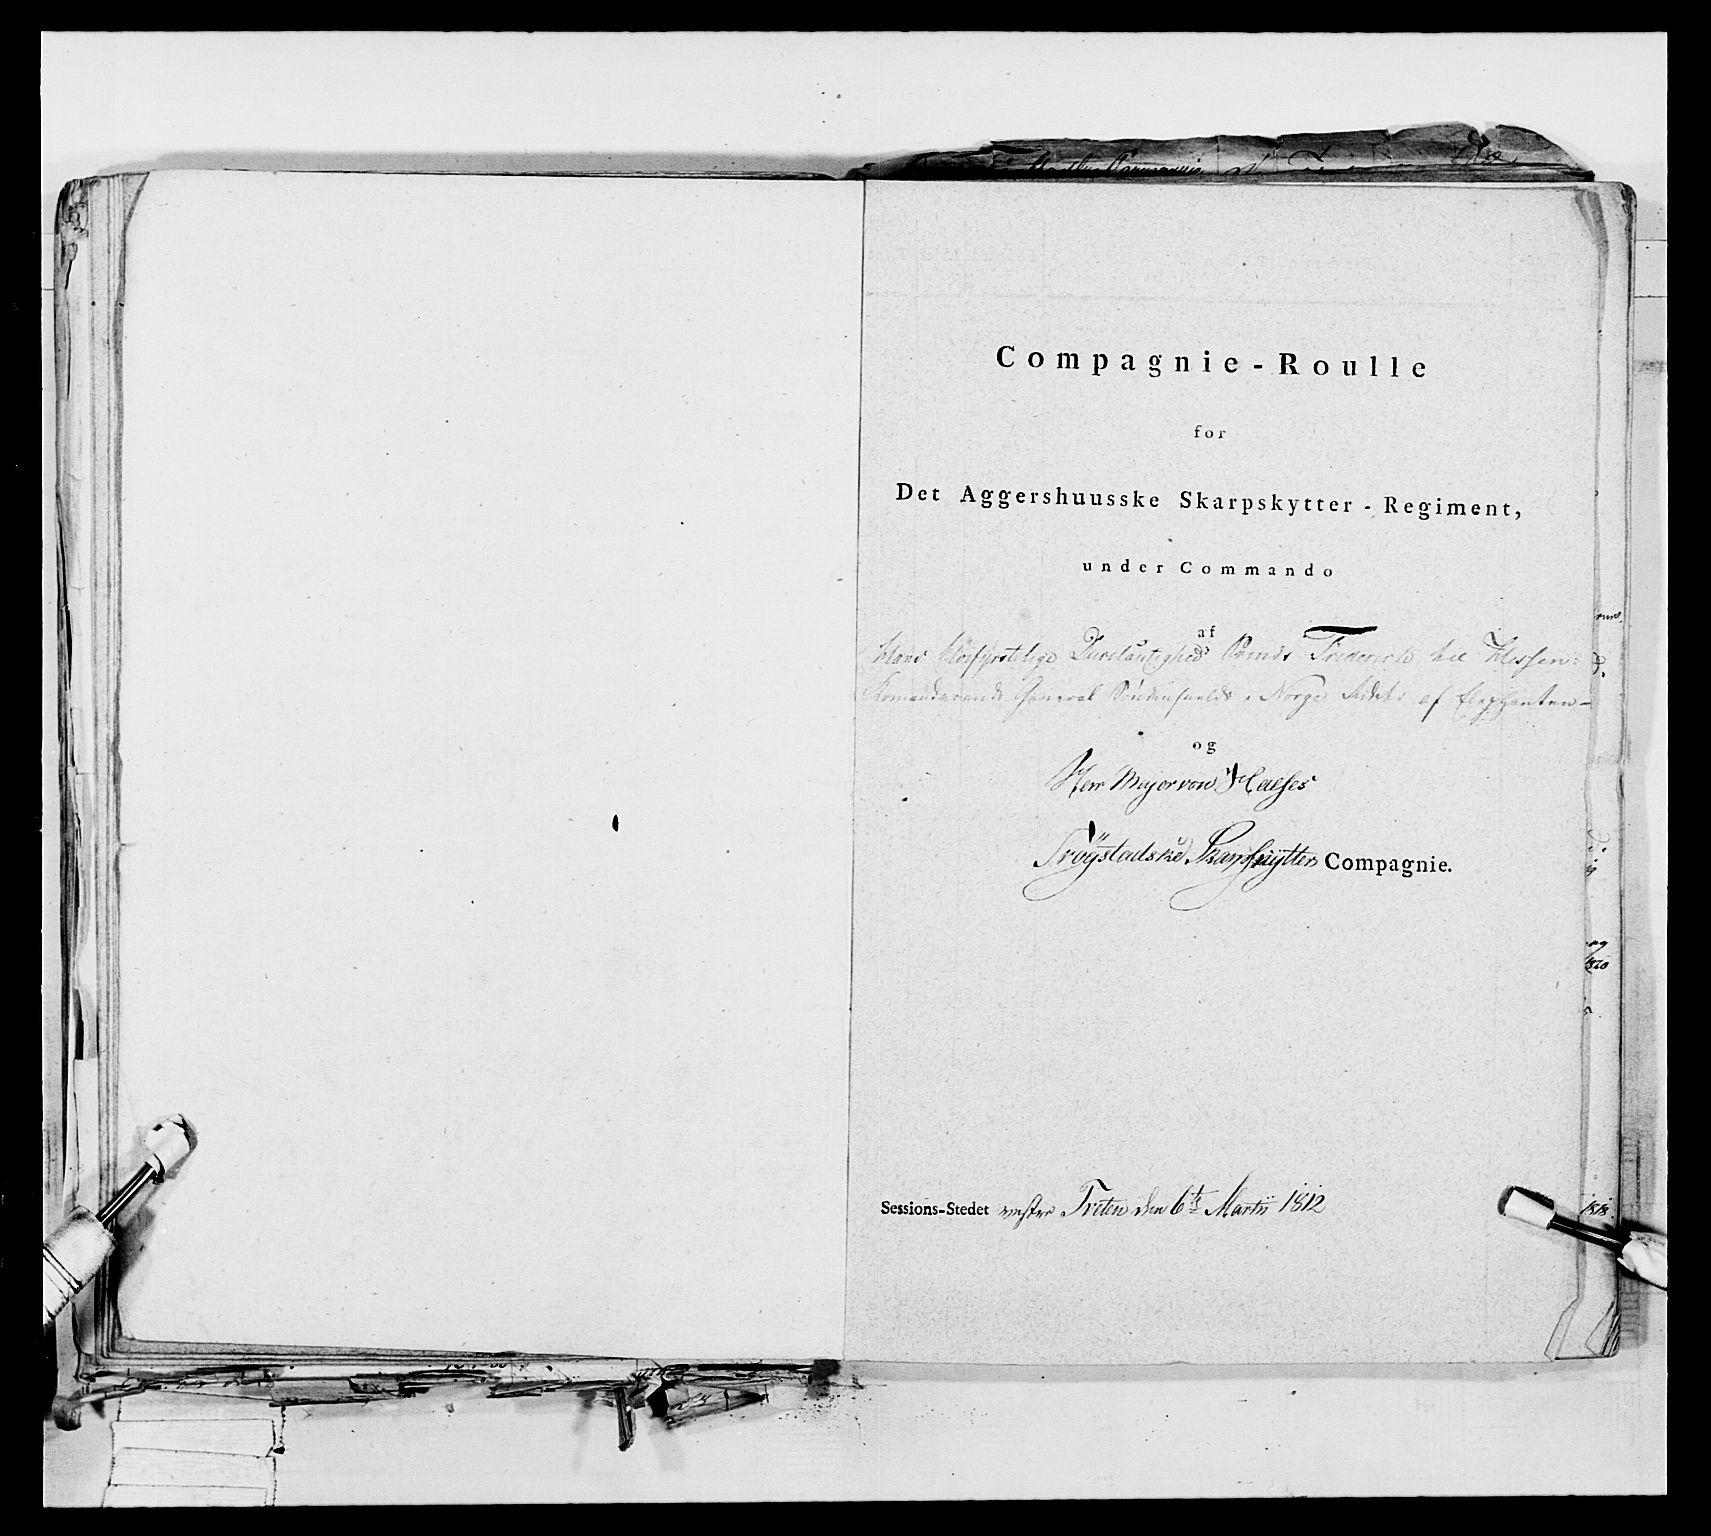 Compagnie-Roulle
for
Det Aggershuusske Skarpskytter-Regiment,
under Commando
af
Hans Høifyrstelige Durclautighed Prinds Friderich til Hessen
Komanderende General Søndenfields i Norge Ridder af Elephanten-
og
Herr Major von Haffes
Trögstadske Skarpskytter Compagnie.
Sessions-Stedet vestre Treten den 6te Martii 1812